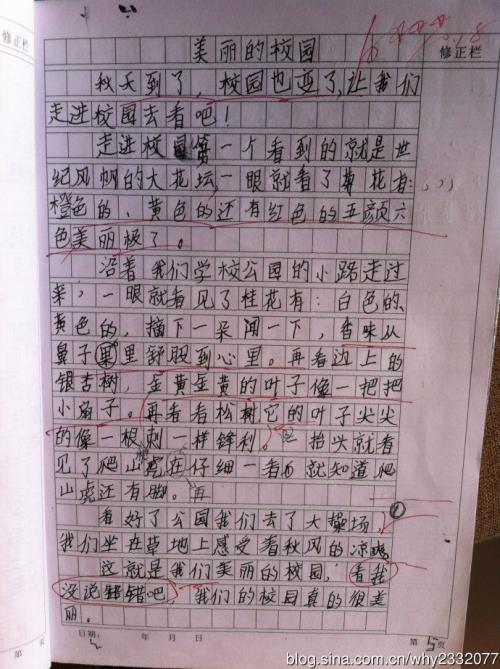 修正栏
修正栏
美丽的校园
秋天到了,校园也变了,让我们
走进校园去看吧!
走进校园第一个看到的就是世
纪风帆的大花坛,一眼就看了菊花有:
橙色的、黄色的还有红色的五颜六
色美丽极了。
沿着我们学校公园的小路走过
来,一眼就看见了桂花有:白色的、
黄色的,摘下一朵闻一下,香味从
鼻子里舒服到心里。再看边上的
银杏树,金黄金黄的叶子像一把把
小扇子。再看看松树它的叶子尖尖
的像一根刺一样锋利。一抬头就看
见了爬山虎在仔细一看就知道爬
山虎还有脚。再
看好了公园我们去了大操场,
我们坐在草地上感受着秋风的凉爽
这就是我们美丽的校园,看我
没说错吧,我们的校园真的很美
丽。
第 页
日期: 年 月 日
第 5 页
blog.sina.com.cn/why2332077